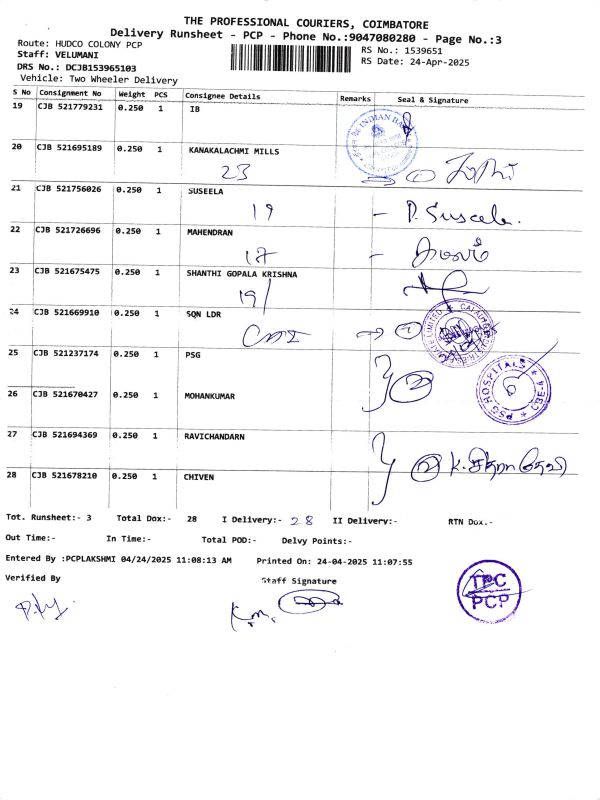 THE PROFESSIONAL COURIERS, COIMBATORE
Delivery Runsheet - PCP - Phone No.:9047080280 - Page No.:3
Route: HUDCO COLONY PCP
RS No.: 1539651
Staff: VELUMANI
RS Date: 24-Apr-2025
DRS No.: DCJB153965103
Vehicle: Two Wheeler Delivery
S No Consignment No Weight PCS Consignee Details Remarks Seal & Signature
19 CJB 521779231 0.250 1 IB
INDIAN BANK
20 CJB 521695189 0.250 1 KANAKALACHMI MILLS
23
21 CJB 521756026 0.250 1 SUSEELA
19 - P. Suseela.
22 CJB 521726696 0.250 1 MAHENDRAN
17 -
23 CJB 521675475 0.250 1 SHANTHI GOPALA KRISHNA
19/
24 CJB 521669910 0.250 1 SQN LDR
25 CJB 521237174 0.250 1 PSG
PSG HOSPITALS ★ CBE-4 ★
26 CJB 521670427 0.250 1 MOHANKUMAR
27 CJB 521694369 0.250 1 RAVICHANDARN
28 CJB 521678210 0.250 1 CHIVEN
Tot. Runsheet:- 3 Total Dox:- 28 I Delivery:- 28 II Delivery:- RTN Dox.-
Out Time:- In Time:- Total POD:- Delvy Points:-
Entered By :PCPLAKSHMI 04/24/2025 11:08:13 AM Printed On: 24-04-2025 11:07:55
Verified By Staff Signature
TPC
PCP